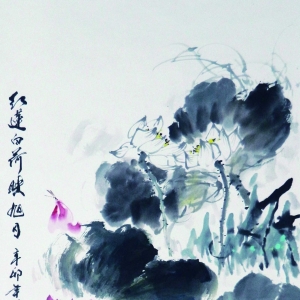 红莲白荷映旭日辛卯年